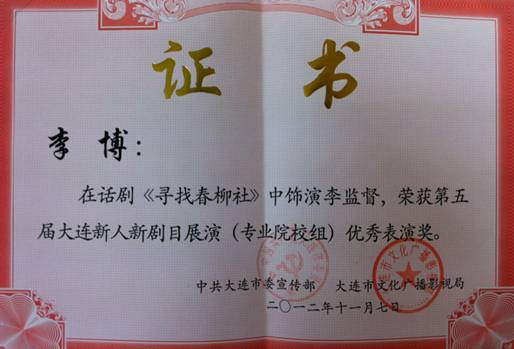 证 书
李 博：
在话剧《寻找春柳社》中饰演李监督，荣获第五
届大连新人新剧目展演（专业院校组）优秀表演奖。
中共大连市委宣传部 大连市文化广播影视局
二〇一二年十一月七日